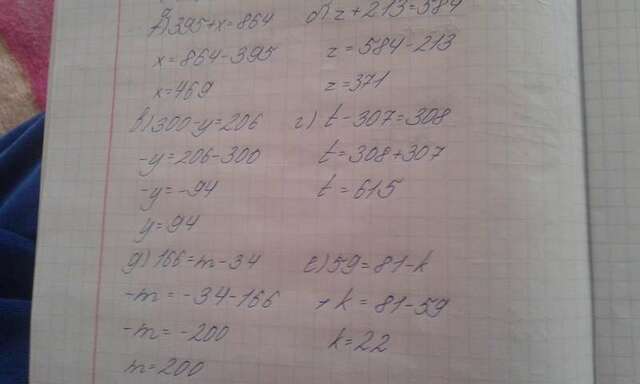 а) 395+x=864 б) z+213=584
x=864-395 z=584-213
x=469 z=371
в) 300-y=206 г) t-307=308
-y=206-300 t=308+307
-y=-94 t=615
y=94
д) 166=m-34 е) 59=81-k
-m=-34-166 + k=81-59
-m=-200 k=22
m=200